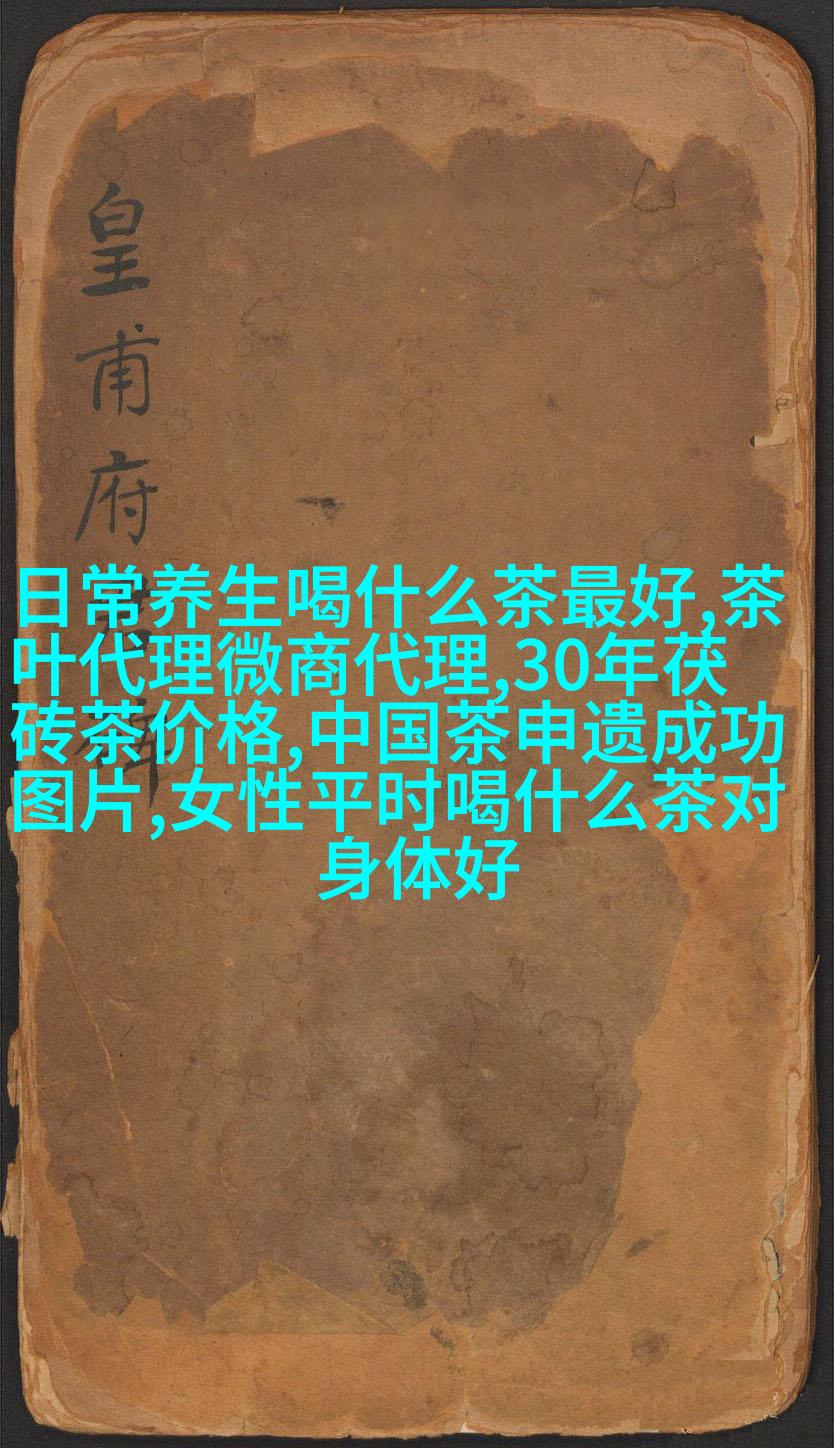 皇甫府
日常养生喝什么茶最好,茶
叶代理微商代理,30年茯
砖茶价格,中国茶申遗成功
图片,女性平时喝什么茶对
身体好